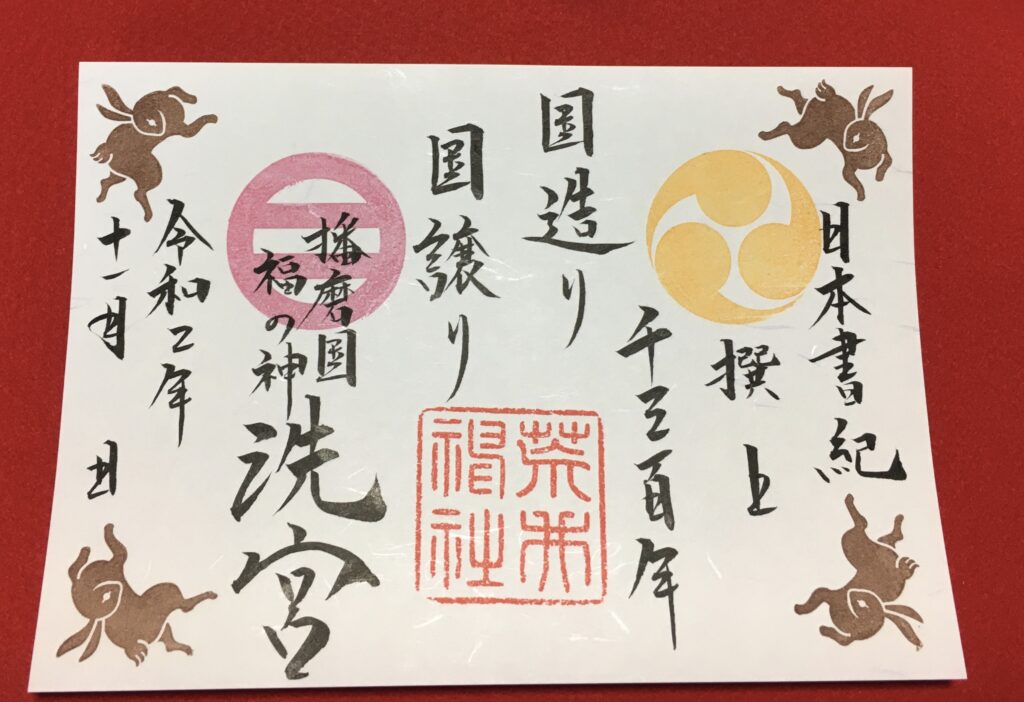 日本書紀
撰上
千三百年
国造り
国譲り
荒井
神社
播磨国
福の神
洗宮
令和二年
十一月 日